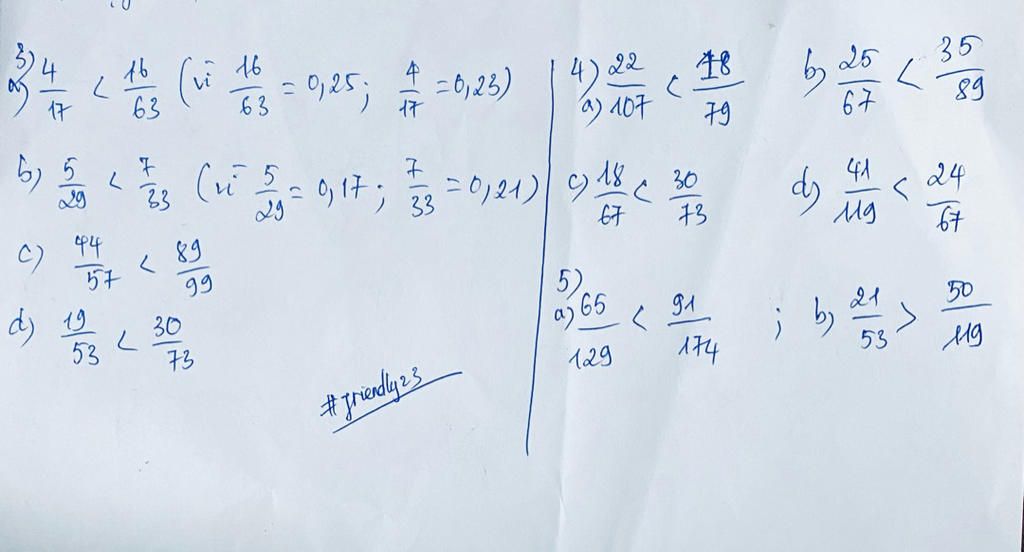 3)
a) 4/17 < 16/63 (vì 16/63 = 0,25; 4/17 = 0,23)
b) 5/29 < 7/33 (vì 5/29 = 0,17; 7/33 = 0,21)
c) 44/57 < 89/99
d) 19/53 < 30/73
#friendly23
4)
a) 22/107 < 18/79 b) 25/67 < 35/89
c) 18/67 < 30/73 d) 41/119 < 24/67
5)
a) 65/129 < 91/174 ; b) 21/53 > 50/119